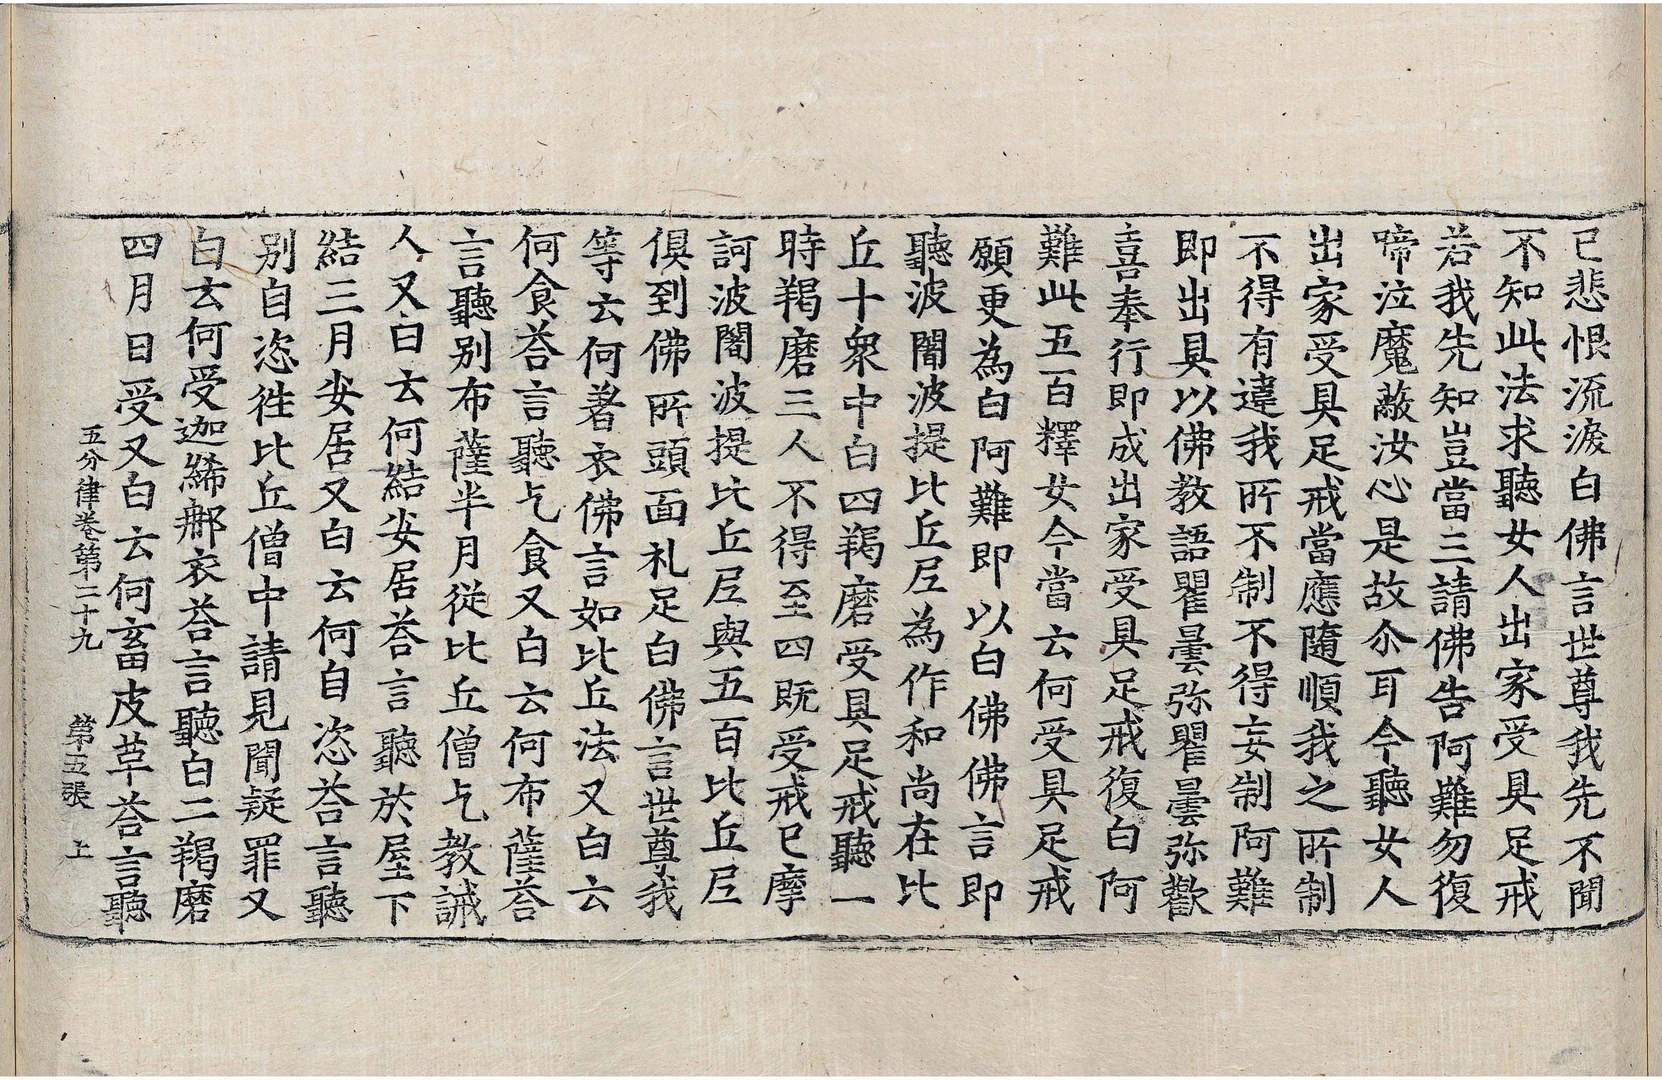 已悲恨流淚白佛言世尊我先不聞
不知此法求聽女人出家受具足戒
若我先知豈當三請佛告阿難勿復
啼泣魔蔽汝心是故尒耳今聽女人
出家受具足戒當應隨順我之所制
不得有違我所不制不得妄制阿難
即出具以佛教語瞿曇弥瞿曇弥歡
喜奉行即成出家受具足戒復白阿
難此五百釋女今當云何受具足戒
願更為白阿難即以白佛佛言即
聽波闍波提比丘尼為作和尚在比
丘十衆中白四羯磨受具足戒聽一
時羯磨三人不得至四既受戒已摩
訶波闍波提比丘尼與五百比丘尼
俱到佛所頭面礼足白佛言世尊我
等云何著衣佛言如比丘法又白云
何食荅言聽乞食又白云何布薩荅
言聽別布薩半月從比丘僧乞教誡
人又白云何結安居荅言聽於屋下
結三月安居又白云何自恣荅言聽
別自恣徃比丘僧中請見聞疑罪又
白云何受迦絺䢴衣荅言聽白二羯磨
四月日受又白云何畜皮革荅言聽
五分律卷第二十九 第五張 上